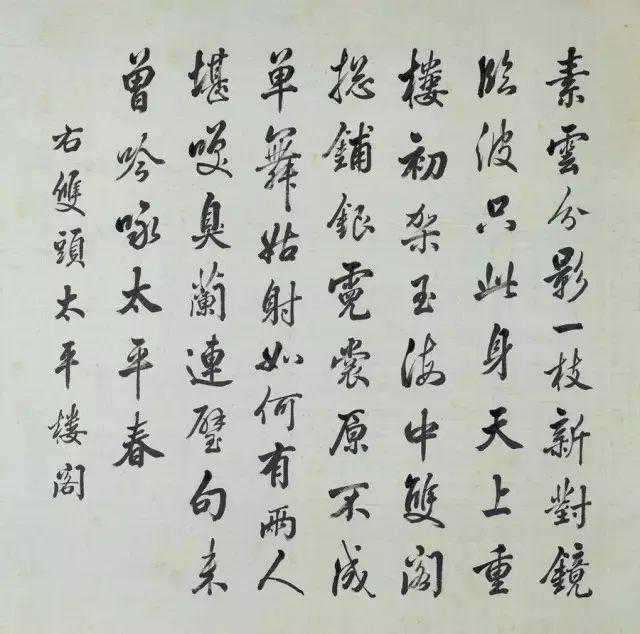 素雲分影一枝新對鏡
臨波只此身天上重
樓初架玉海中雙閣
捴鋪銀霓裳原不成
単舞姑射如何有兩人
堪嘆臭蘭連璧句未
曾吟咏太平春
右雙頭太平樓閣